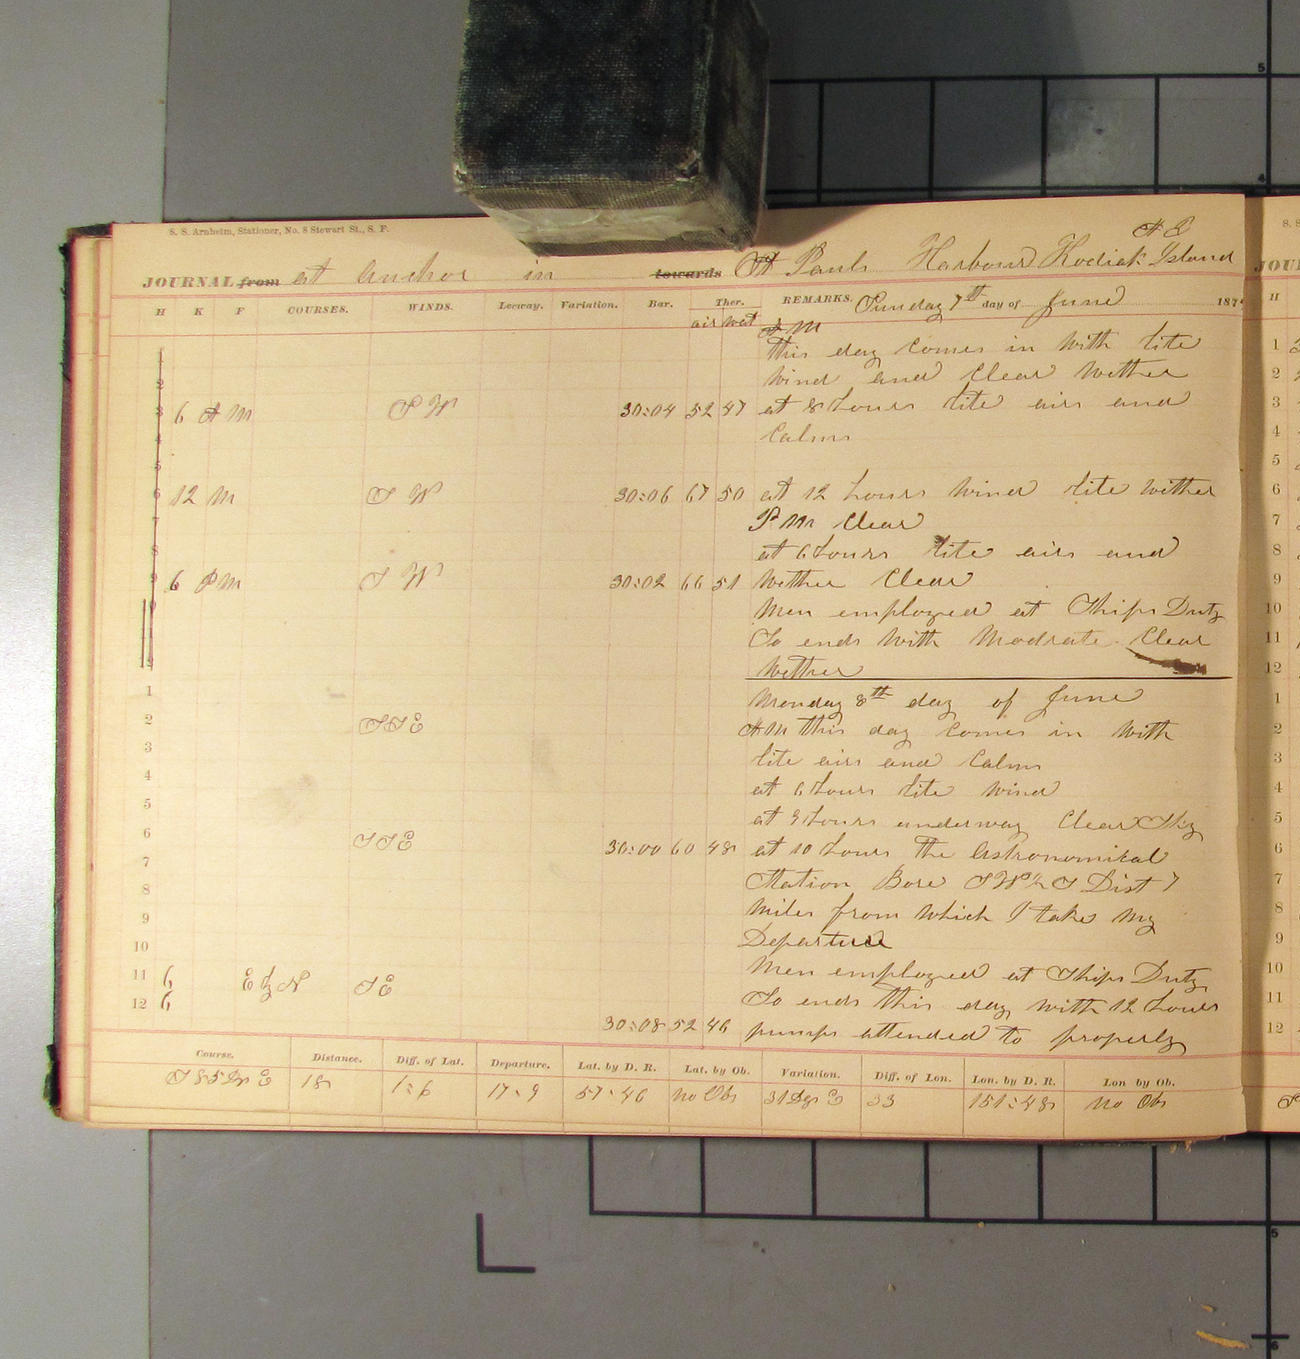 S. S. Arnheim, Stationer, No. 8 Stewart St., S. F.
JOURNAL from at anchor in towards St Pauls Harbour Kodiak Island
H K F COURSES. WINDS. Leeway. Variation. Bar. Ther. REMARKS. Sunday 7th day of June 187
air wat
A M
this day comes in with lite
wind and clear wether
6 A M S W 30:04 52 47 at 8 hours lite airs and
calms
12 M S W 30:06 67 50 at 12 hours wind lite wether
P M clear
at 6 hours lite airs and
6 P M S W 30:02 66 51 wether clear
men employed at Ships Duty
So ends with modrate clear
wether
1 Monday 8th day of June
2 SSE A M this day comes in with
3 lite airs and calms
4 at 6 hours lite wind
5 at 9 hours underway clear Sky
6 SSE 30:00 60 48 at 10 hours the Astronomical
7 Station Bore SW½S Dist 7
8 miles from which I take my
9 Departure
10 men employed at Ships Duty
11 6 E ½ N SE So ends this day with 12 hours
12 6
30:08 52 46 pumps attended to properly
Course. Distance. Diff. of Lat. Departure. Lat. by D. R. Lat. by Ob. Variation. Diff. of Lon. Lon. by D. R. Lon by Ob.
S 85 Dg E 18 1:6 17:9 57:46 no Obs 31 Dgs E 33 151:48 no Obs